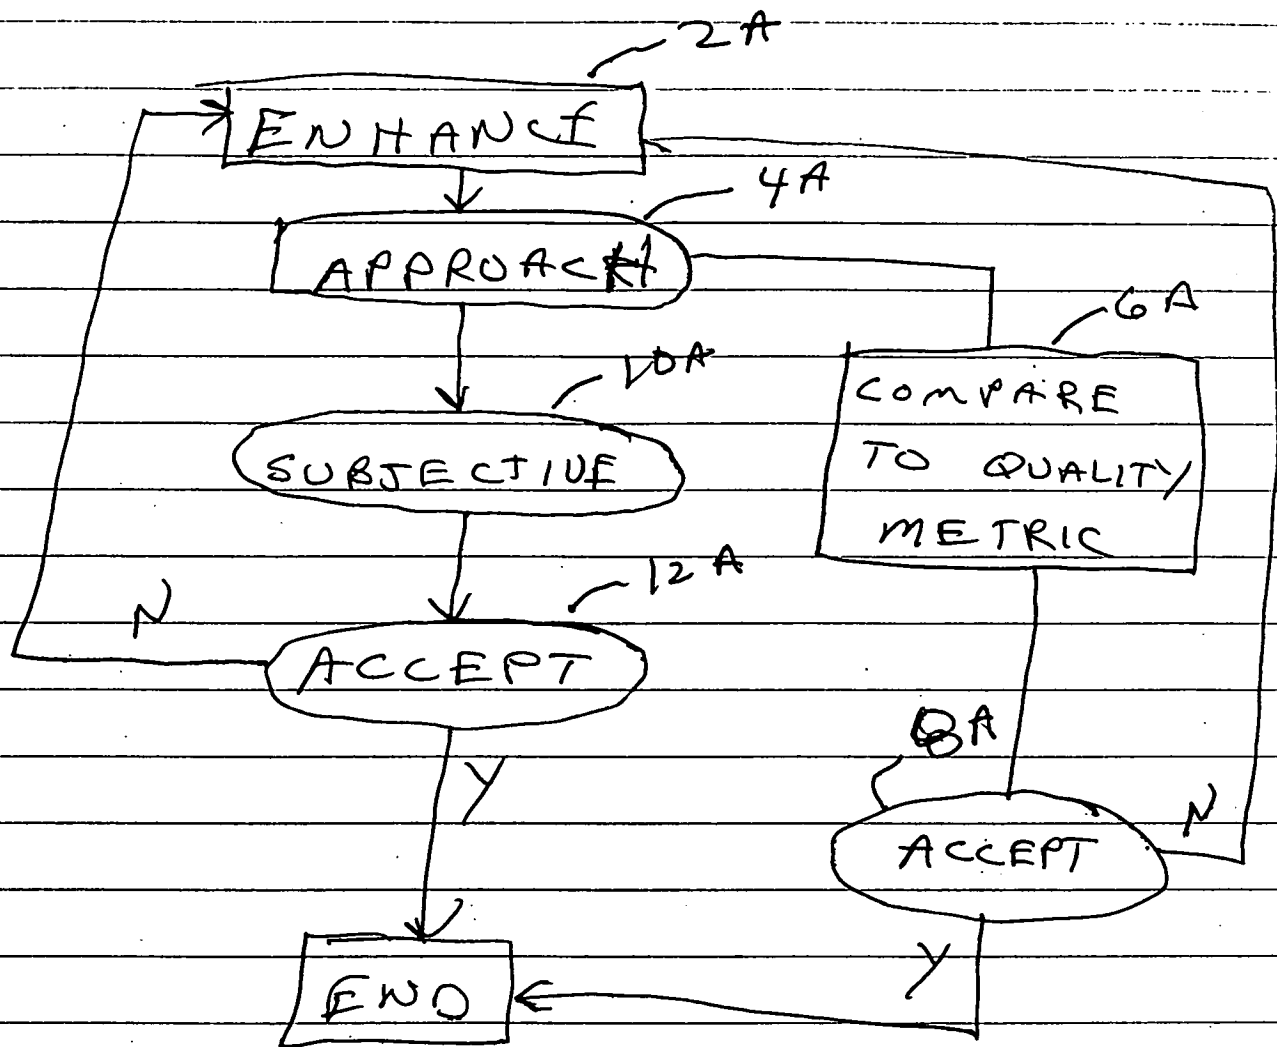 2A
ENHANCE
4A
APPROACH
6A
10A
COMPARE
TO QUALITY
METRIC
SUBJECTIVE
12A
N
ACCEPT
8A
Y
N
ACCEPT
Y
END